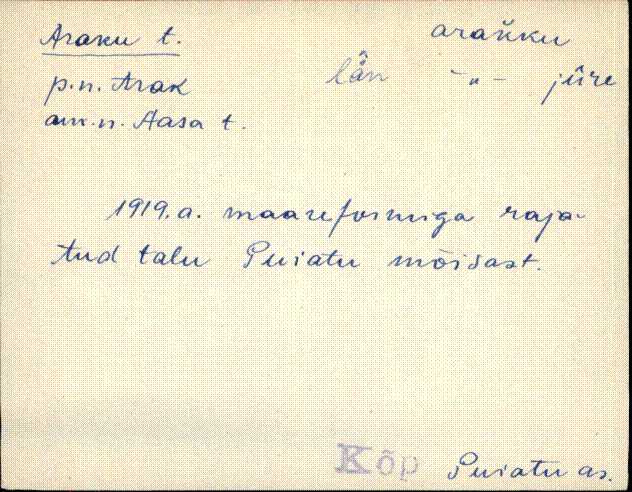 Araku t. arak̆ku
p.n. Arak län -"- jüre
amt.n. Aasa t.
1919.a. maareformiga raja-
tud talu Puiatu mõisast.
Kõp Puiatu as.